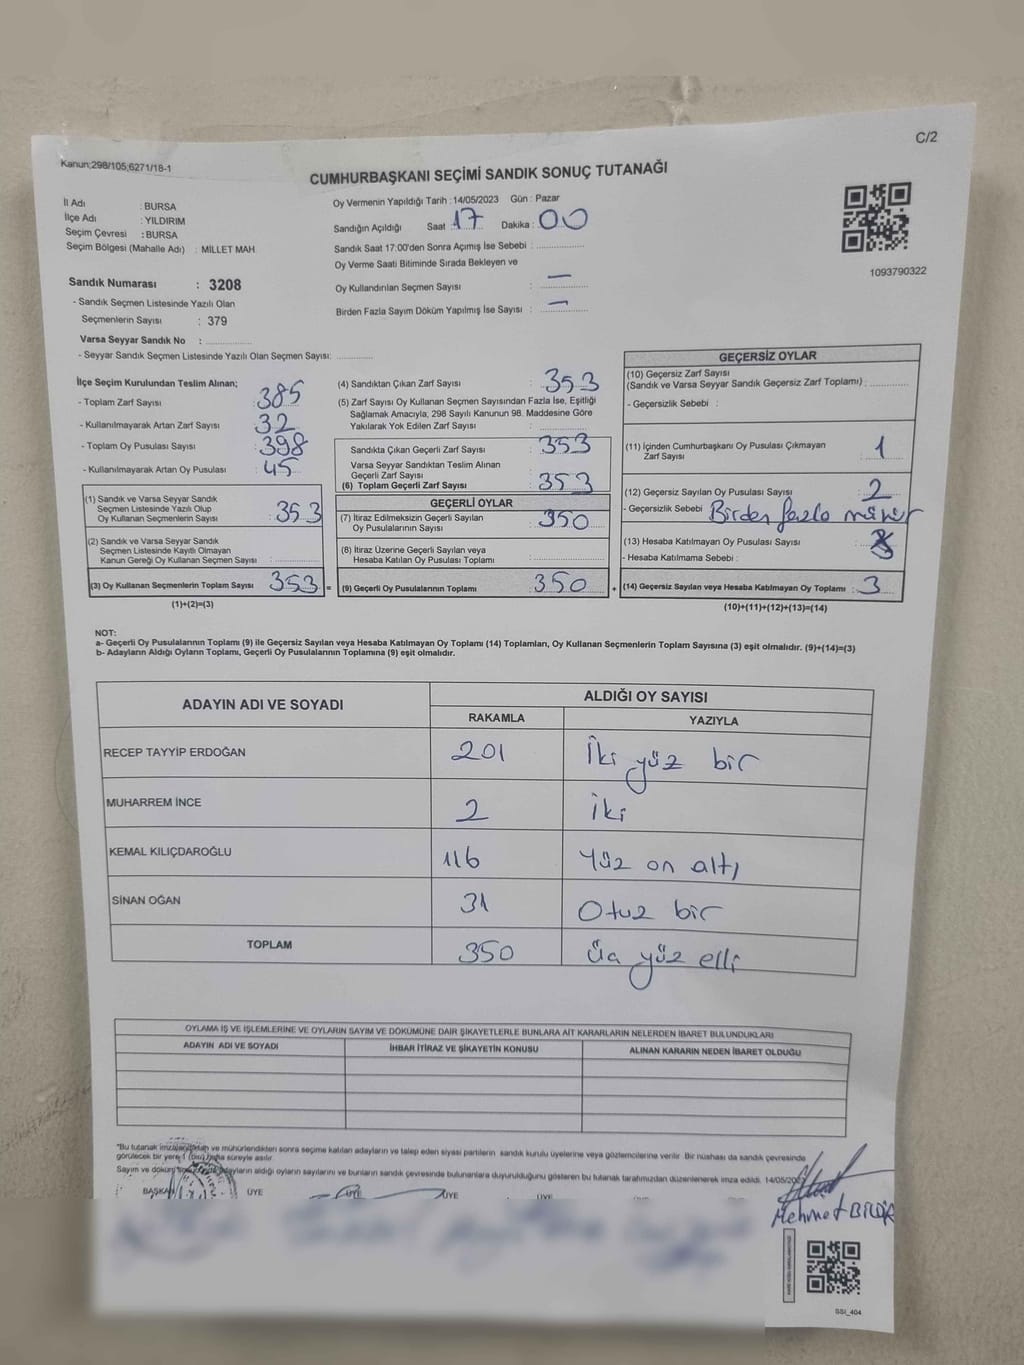 C/2
Kanun;298/105,6271/18-1
CUMHURBAŞKANI SEÇİMİ SANDIK SONUÇ TUTANAĞI
İl Adı : BURSA
İlçe Adı : YILDIRIM
Seçim Çevresi : BURSA
Seçim Bölgesi (Mahalle Adı) : MİLLET MAH
Oy Vermenin Yapıldığı Tarih : 14/05/2023 Gün : Pazar
Sandığın Açıldığı Saat : 17 Dakika : 00
Sandık Saat 17:00'den Sonra Açımış İse Sebebi :
Oy Verme Saati Bitiminde Sırada Bekleyen ve
Oy Kullandırılan Seçmen Sayısı : —
Birden Fazla Sayım Döküm Yapılmış İse Sayısı : —
1093790322
Sandık Numarası : 3208
- Sandık Seçmen Listesinde Yazılı Olan
Seçmenlerin Sayısı : 379
Varsa Seyyar Sandık No :
- Seyyar Sandık Seçmen Listesinde Yazılı Olan Seçmen Sayısı:
İlçe Seçim Kurulundan Teslim Alınan;
- Toplam Zarf Sayısı : 385
- Kullanılmayarak Artan Zarf Sayısı : 32
- Toplam Oy Pusulası Sayısı : 398
- Kullanılmayarak Artan Oy Pusulası : 45
(1) Sandık ve Varsa Seyyar Sandık
Seçmen Listesinde Yazılı Olup
Oy Kullanan Seçmenlerin Sayısı : 353
(2) Sandık ve Varsa Seyyar Sandık
Seçmen Listesinde Kayıtlı Olmayan
Kanun Gereği Oy Kullanan Seçmen Sayısı :
(3) Oy Kullanan Seçmenlerin Toplam Sayısı : 353 =
(1)+(2)=(3)
(4) Sandıktan Çıkan Zarf Sayısı : 353
(5) Zarf Sayısı Oy Kullanan Seçmen Sayısından Fazla İse, Eşitliği
Sağlamak Amacıyla, 298 Sayılı Kanunun 98. Maddesine Göre
Yakılarak Yok Edilen Zarf Sayısı :
Sandıkta Çıkan Geçerli Zarf Sayısı : 353
Varsa Seyyar Sandıktan Teslim Alınan
Geçerli Zarf Sayısı :
(6) Toplam Geçerli Zarf Sayısı : 353
GEÇERLİ OYLAR
(7) İtiraz Edilmeksizin Geçerli Sayılan
Oy Pusulalarının Sayısı : 350
(8) İtiraz Üzerine Geçerli Sayılan veya
Hesaba Katılan Oy Pusulası Toplamı :
(9) Geçerli Oy Pusulalarının Toplamı : 350 +
GEÇERSİZ OYLAR
(10) Geçersiz Zarf Sayısı
(Sandık ve Varsa Seyyar Sandık Geçersiz Zarf Toplamı) :
- Geçersizlik Sebebi :
(11) İçinden Cumhurbaşkanı Oy Pusulası Çıkmayan
Zarf Sayısı : 1
(12) Geçersiz Sayılan Oy Pusulası Sayısı : 2
- Geçersizlik Sebebi : Birden fazla mühür
(13) Hesaba Katılmayan Oy Pusulası Sayısı :
- Hesaba Katılmama Sebebi :
(14) Geçersiz Sayılan veya Hesaba Katılmayan Oy Toplamı : 3
(10)+(11)+(12)+(13)=(14)
NOT:
a- Geçerli Oy Pusulalarının Toplamı (9) ile Geçersiz Sayılan veya Hesaba Katılmayan Oy Toplamı (14) Toplamları, Oy Kullanan Seçmenlerin Toplam Sayısına (3) eşit olmalıdır. (9)+(14)=(3)
b- Adayların Aldığı Oyların Toplamı, Geçerli Oy Pusulalarının Toplamına (9) eşit olmalıdır.
ADAYIN ADI VE SOYADI ALDIĞI OY SAYISI
RAKAMLA YAZIYLA
RECEP TAYYİP ERDOĞAN 201 İki yüz bir
MUHARREM İNCE 2 İki
KEMAL KILIÇDAROĞLU 116 Yüz on altı
SİNAN OĞAN 31 Otuz bir
TOPLAM 350 Üç yüz elli
OYLAMA İŞ VE İŞLEMLERİNE VE OYLARIN SAYIM VE DÖKÜMÜNE DAİR ŞİKAYETLERLE BUNLARA AİT KARARLARIN NELERDEN İBARET BULUNDUKLARI
ADAYIN ADI VE SOYADI İHBAR İTİRAZ VE ŞİKAYETİN KONUSU ALINAN KARARIN NEDEN İBARET OLDUĞU
*Bu tutanak imzalandıktan ve mühürlendikten sonra seçime katılan adayların ve talep eden siyasi partilerin sandık kurulu üyelerine veya gözlemcilerine verilir. Bir nüshası da sandık çevresinde
görülecek bir yere 1 (bir) hafta süreyle asılır.
Sayım ve döküm adayların aldığı oyların sayılarını ve bunların sandık çevresinde bulunanlara duyurulduğunu gösteren bu tutanak tarafımızdan düzenlenerek imza edildi. 14/05/202
BAŞKAN ÜYE ÜYE ÜYE ÜYE
Mehmet
SSİ_404